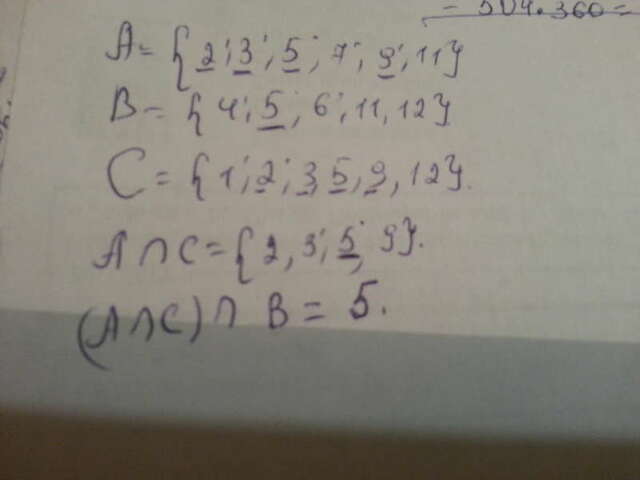 = 504.360 =
A = {2; 3; 5; 7; 9; 11}
B = {4; 5; 6; 11, 12}
C = {1; 2; 3 5, 9, 12}.
A ∩ C = {2, 3; 5, 9}.
(A ∩ C) ∩ B = 5.